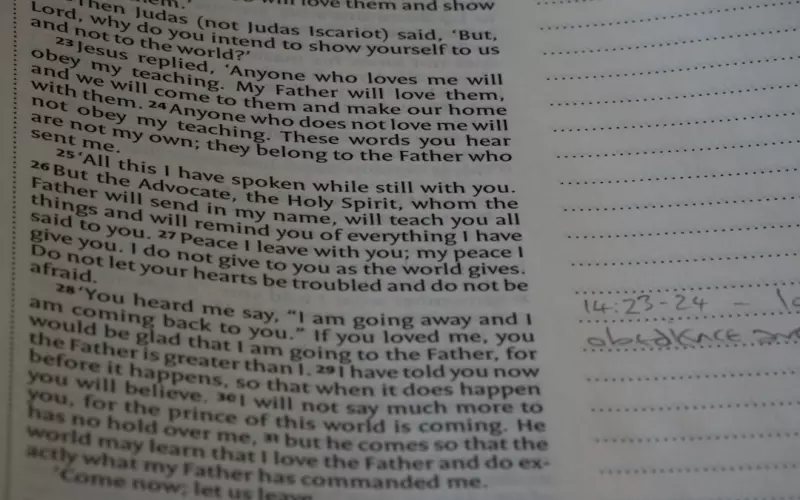 them.'
will love them and show
Then Judas (not Judas Iscariot) said, 'But,
Lord, why do you intend to show yourself to us
and not to the world?'
23 Jesus replied, 'Anyone who loves me will
obey my teaching. My Father will love them,
and we will come to them and make our home
with them. 24 Anyone who does not love me will
not obey my teaching. These words you hear
are not my own; they belong to the Father who
sent me.
25 'All this I have spoken while still with you.
26 But the Advocate, the Holy Spirit, whom the
Father will send in my name, will teach you all
things and will remind you of everything I have
said to you. 27 Peace I leave with you; my peace I
give you. I do not give to you as the world gives.
Do not let your hearts be troubled and do not be
afraid.
28 'You heard me say, "I am going away and I
am coming back to you." If you loved me, you
would be glad that I am going to the Father, for
the Father is greater than I. 29 I have told you now
before it happens, so that when it does happen
you will believe. 30 I will not say much more to
you, for the prince of this world is coming. He
has no hold over me, 31 but he comes so that the
world may learn that I love the Father and do ex-
actly what my Father has commanded me.
'Come now; let us leave.
14:23-24 -
obedience